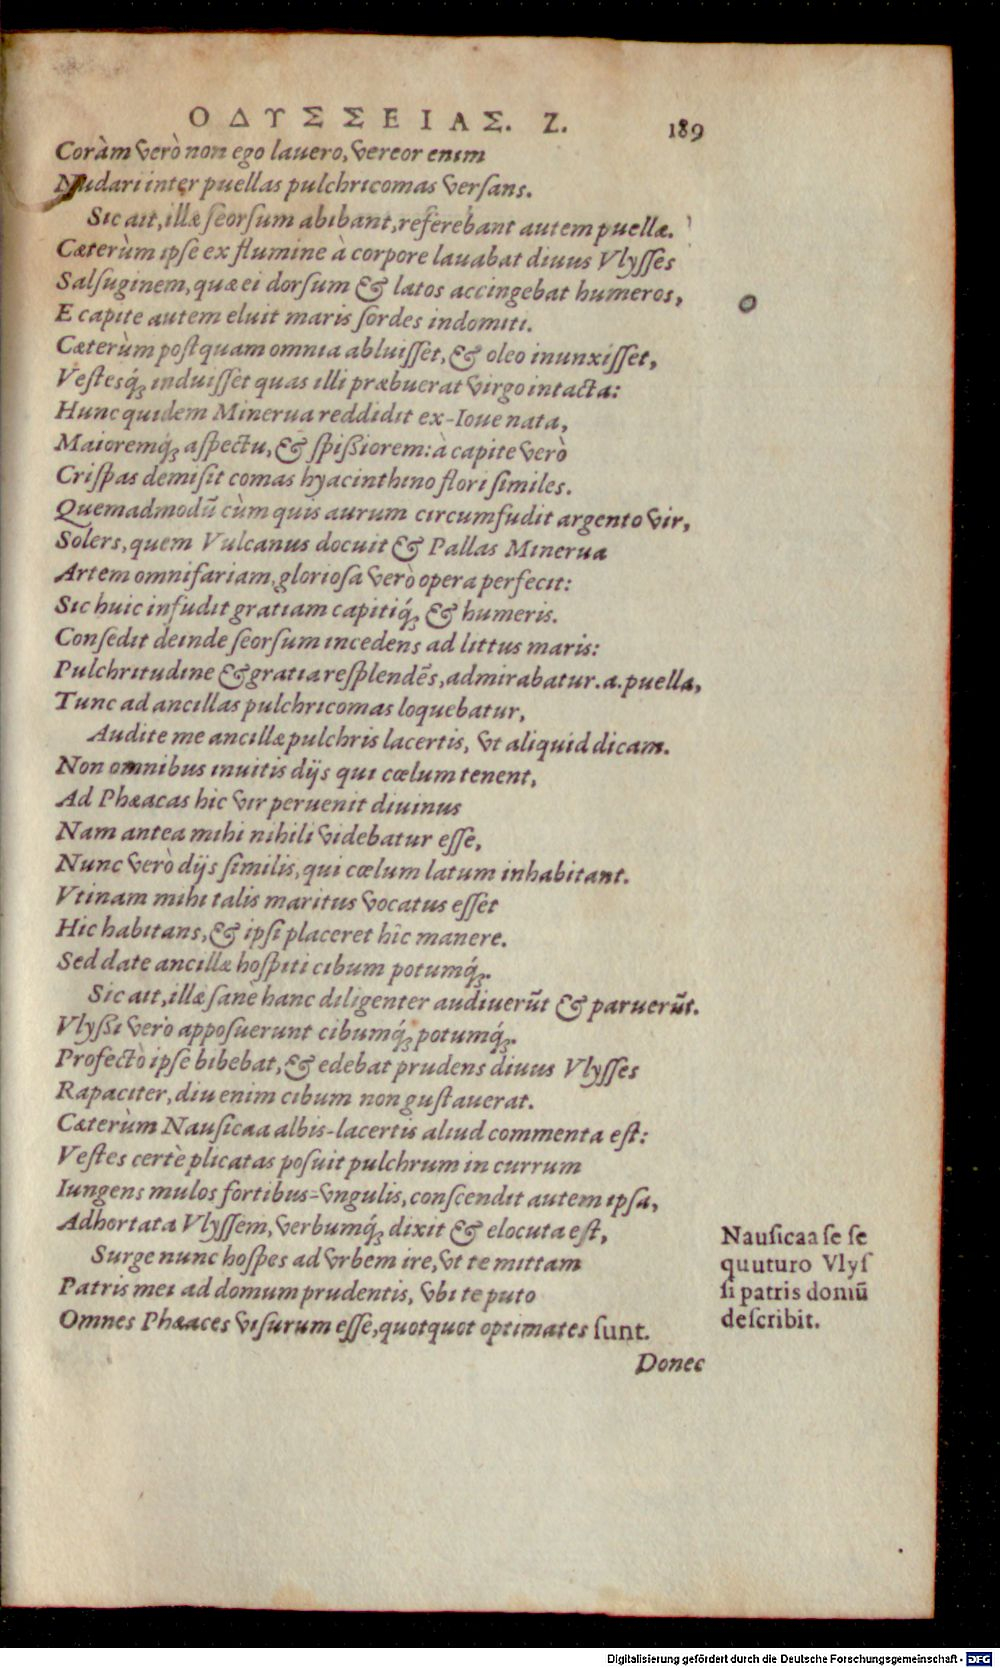 ΟΔΥΣΣΕΙΑΣ. Ζ. 189
Coràm verò non ego lauero, vereor enim
Nudari inter puellas pulchricomas versans.
Sic ait, illæ seorsum abibant, referebant autem puellæ.
Cæterùm ipse ex flumine à corpore lauabat diuus Vlysses
Salsuginem, quæ ei dorsum & latos accingebat humeros,
E capite autem eluit maris sordes indomiti.
Cæterùm postquam omnia abluisset, & oleo inunxisset,
Vestesq́; induisset quas illi præbuerat virgo intacta:
Hunc quidem Minerua reddidit ex-Ioue nata,
Maioremq́; aspectu, & spißiorem: à capite verò
Crispas demisit comas hyacinthino flori similes.
Quemadmodū cùm quis aurum circumfudit argento vir,
Solers, quem Vulcanus docuit & Pallas Minerua
Artem omnifariam, gloriosa verò opera perfecit:
Sic huic infudit gratiam capitiq́; & humeris.
Consedit deinde seorsum incedens ad littus maris:
Pulchritudine & gratia resplendēs, admirabatur.a.puella,
Tunc ad ancillas pulchricomas loquebatur,
Audite me ancillæ pulchris lacertis, vt aliquid dicam.
Non omnibus inuitis dijs qui cœlum tenent,
Ad Phæacas hic vir peruenit diuinus
Nam antea mihi nihili videbatur esse,
Nunc verò dijs similis, qui cœlum latum inhabitant.
Vtinam mihi talis maritus vocatus esset
Hic habitans, & ipsi placeret hîc manere.
Sed date ancillæ hospiti cibum potumq́;.
Sic ait, illæ sanè hanc diligenter audiuerūt & paruerūt.
Vlyßi verò apposuerunt cibumq́; potumq́;.
Profectò ipse bibebat, & edebat prudens diuus Vlysses
Rapaciter, diu enim cibum non gustauerat.
Cæterùm Nausicaa albis-lacertis aliud commenta est:
Vestes certè plicatas posuit pulchrum in currum
Iungens mulos fortibus-vngulis, conscendit autem ipsa,
Adhortata Vlyssem, verbumq́; dixit & elocuta est,
Surge nunc hospes ad vrbem ire, vt te mittam
Patris mei ad domum prudentis, vbi te puto
Omnes Phæaces visurum esse, quotquot optimates sunt.
Donec
Nausicaa se se
quuturo Vlys
si patris domū
describit.
Digitalisierung gefördert durch die Deutsche Forschungsgemeinschaft - DFG